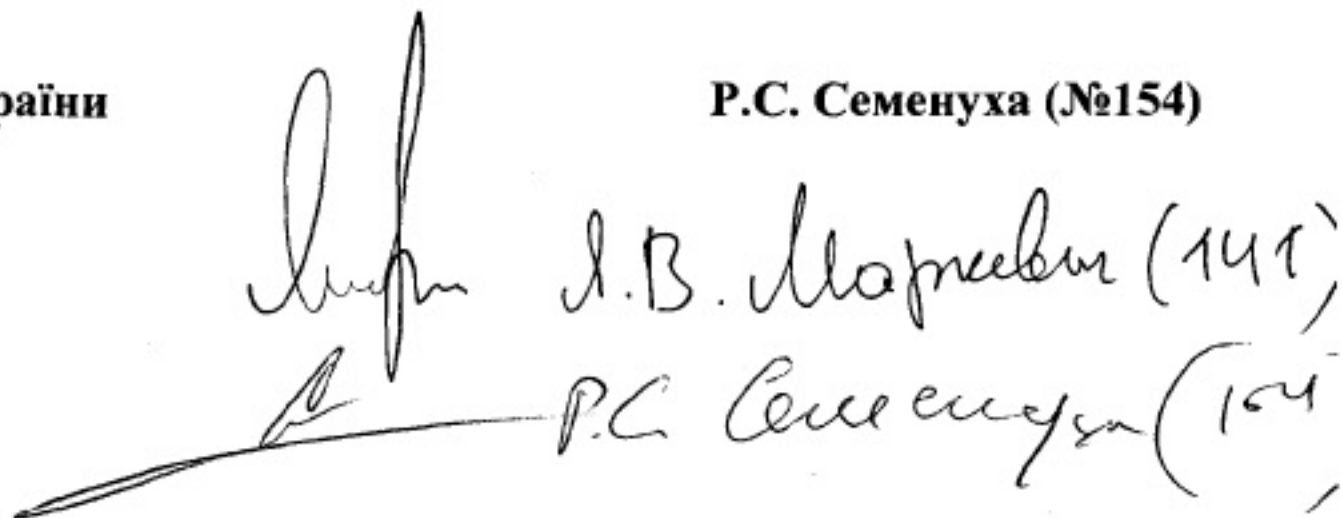 раїни Р.С. Семенуха (№154)
Я.В. Маркевич (141)
Р.С. Семенуха (154